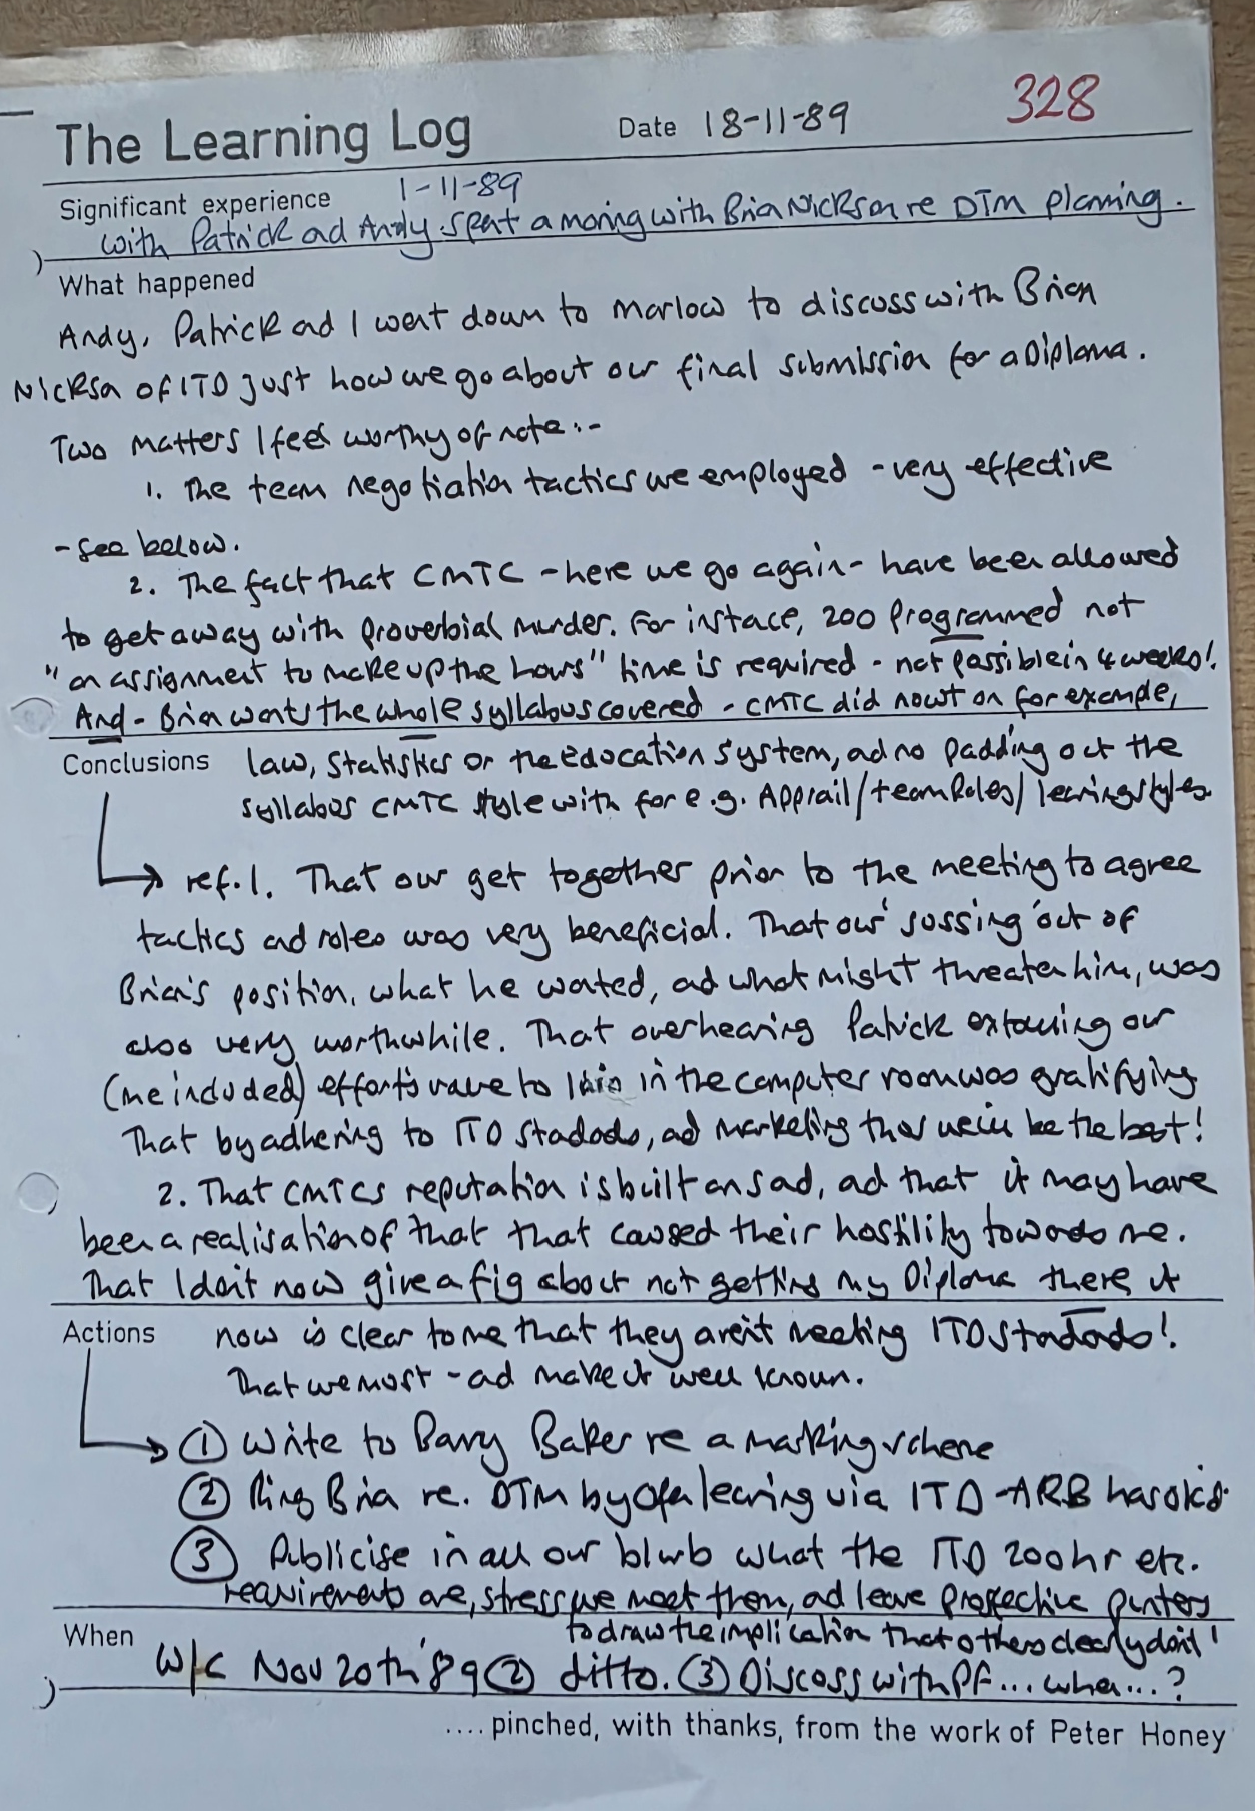 328
The Learning Log Date 18-11-89
Significant experience 1-11-89
with Patrick ad Andy spent a morning with Brian Nickson re DTM planning.
What happened
Andy, Patrick ad I went down to Marlow to discuss with Brian
Nickson of ITD just how we go about our final submission for a Diploma.
Two matters I feel worthy of note:-
1. The team negotiation tactics we employed - very effective
- see below.
2. The fact that CMTC - here we go again - have been allowed
to get away with proverbial murder. For instace, 200 programmed not
"an assignment to make up the hours" time is required - not possible in 4 weeks!
And - Brian wants the whole syllabus covered - CMTC did nowt on for example,
Conclusions law, statistics or the education system, ad no padding out the
syllabus CMTC style with for e.g. Apprail/team Roles/learning styles
→ ref.1. That our get together prior to the meeting to agree
tactics ad roles was very beneficial. That our 'sussing' out of
Brian's position, what he wanted, ad what might threaten him, was
also very worthwhile. That overhearing Patrick extolling our
(me included) efforts in the computer room was gratifying
That by adhering to ITD stadads, ad marketing be the best!
2. That CMTCs reputation is built on sad, ad that it may have
been a realisation of that that caused their hostility towards me.
That I don't now give a fig about not getting my Diploma there it
Actions now is clear to me that they aren't meeting ITD stadads!
That we must - ad make it well known.
→ ① Write to Barry Baker re a marking scheme
② Ring Brian re. DTM by open learning via ITD - ARB has
③ Publicise in all our blurb what the ITD 200hr etc.
requirements are, stress we meet them, ad leave prospective punters
When to draw the implication that others clearly don't!
W/C Nov 20th '89 ② ditto. ③ Discuss with PF... when...?
.... pinched, with thanks, from the work of Peter Honey